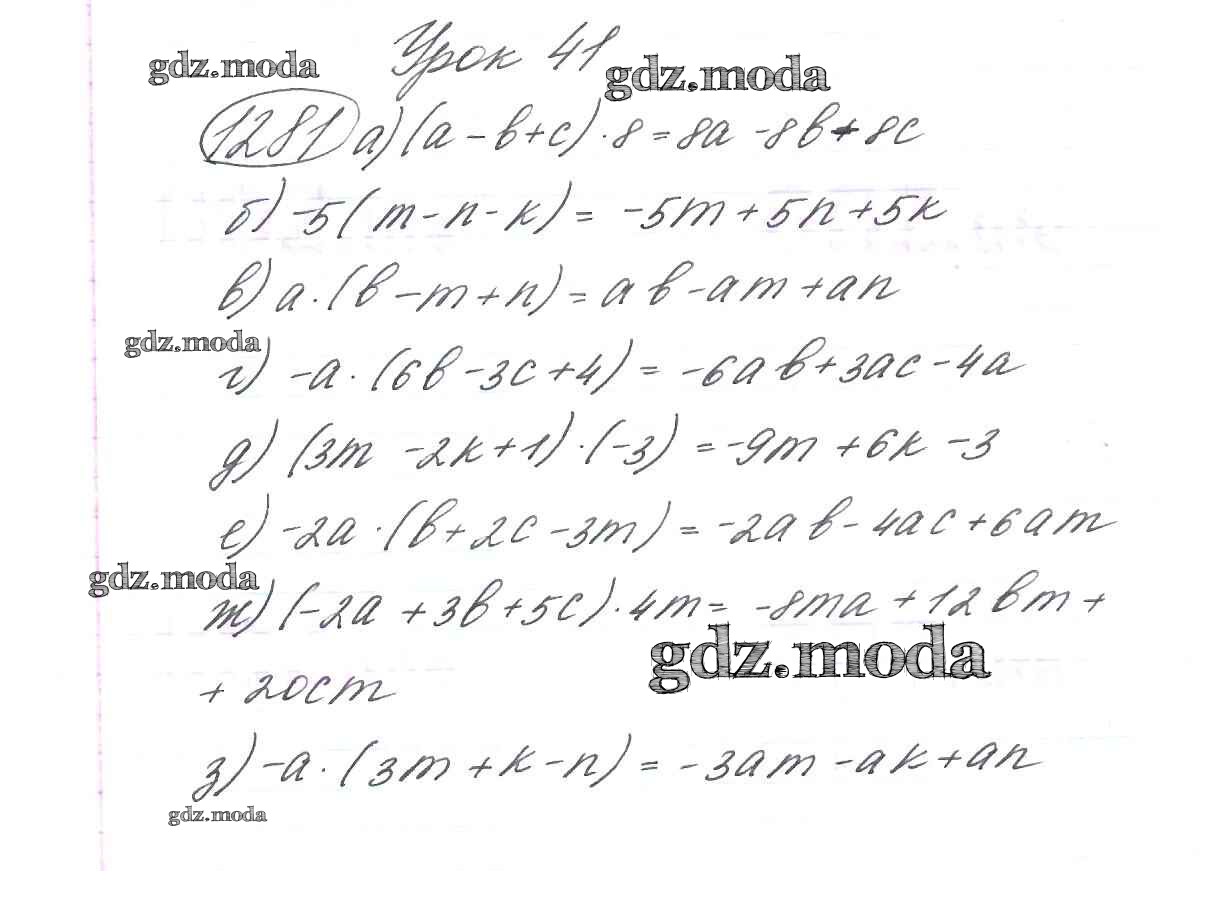 Урок 41
gdz.moda
gdz.moda
1281 а) (a - b + c) · 8 = 8a - 8b + 8c
б) -5(m - n - k) = -5m + 5n + 5k
в) a · (b - m + n) = ab - am + an
gdz.moda
г) -a · (6b - 3c + 4) = -6ab + 3ac - 4a
д) (3m - 2k + 1) · (-3) = -9m + 6k - 3
е) -2a · (b + 2c - 3m) = -2ab - 4ac + 6am
gdz.moda
ж) (-2a + 3b + 5c) · 4m = -8ma + 12bm +
gdz.moda
+ 20cm
з) -a · (3m + k - n) = -3am - ak + an
gdz.moda